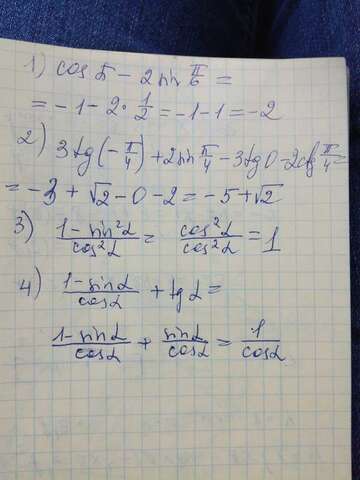 1) cos π - 2 sin π/6 =
= -1 - 2 · 1/2 = -1 - 1 = -2
2) 3tg(-π/4) + 2sin π/4 - 3tg0 - 2ctg π/4 =
= -3 + √2 - 0 - 2 = -5 + √2
3) (1 - sin²α)/(cos²α) = (cos²α)/(cos²α) = 1
4) (1 - sinα)/(cosα) + tgα =
(1 - sinα)/(cosα) + (sinα)/(cosα) = 1/(cosα)